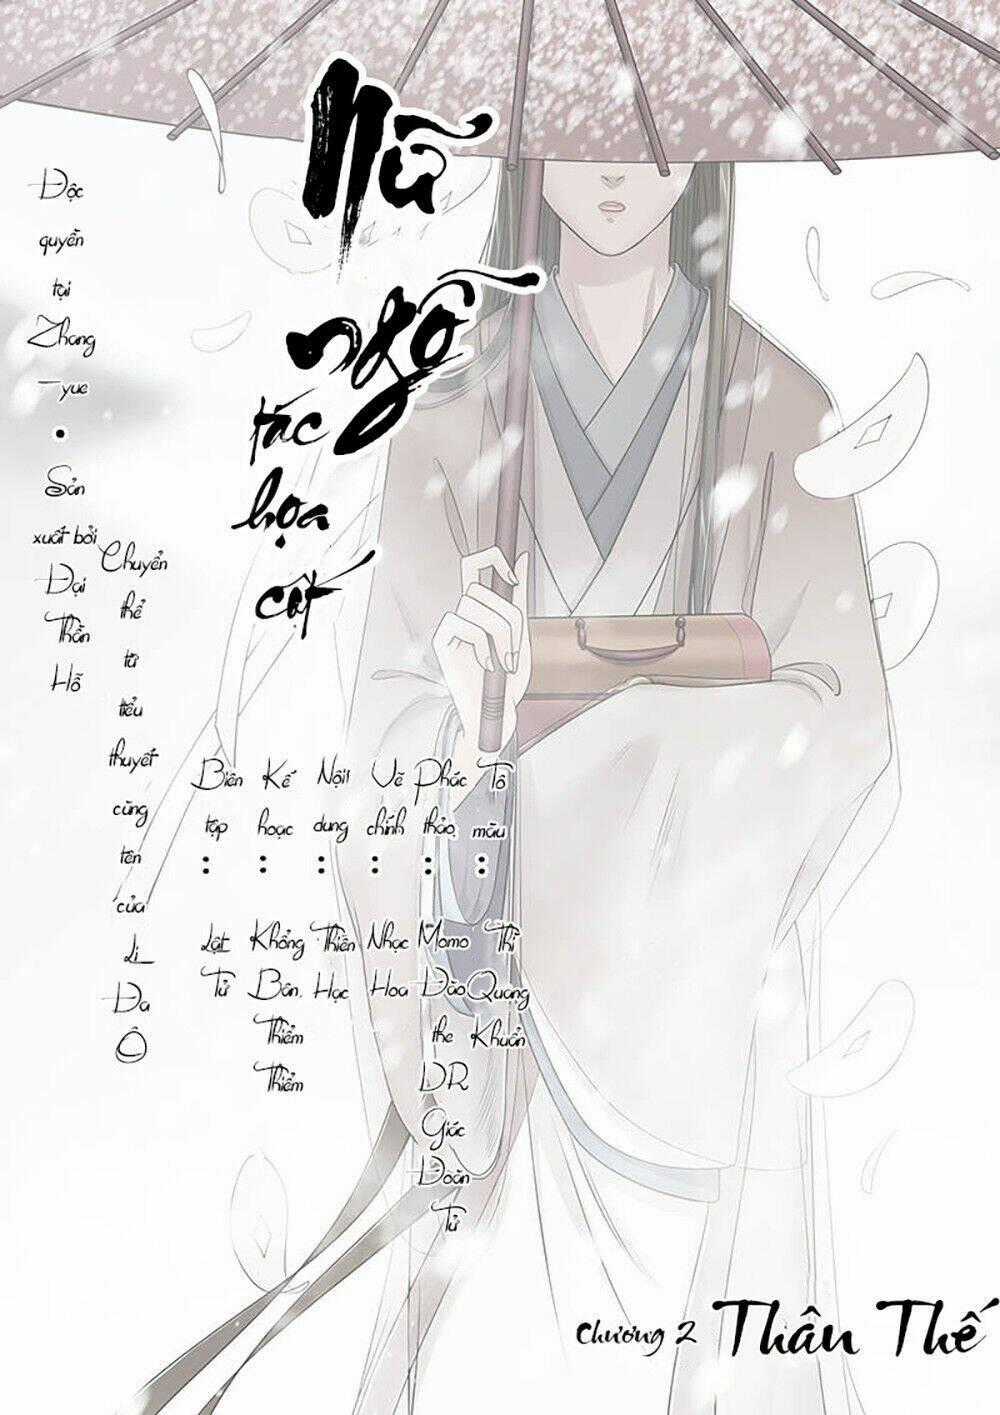 Nữ
ngỗ
tác
họa
cốt
Độc
quyền
tại
Zhang
-yue
•
Sản
xuất bởi
Đại
Thần
Hỗ
Chuyển
thể
từ
tiểu
thuyết
cùng
tên
của
Li
Đa
Ô
Biên
tập
:
Lật
Tử
Kế
hoạc
:
Khổng
Bân.
Thiểm
Thiểm
Nội
dung
:
Thiên
Hạc
Vẽ
chính
:
Nhạc
Hoa
Phác
thảo
:
Momo
Đào
the
DR
Giác
Đoàn
Tử
Tô
màu
:
Thì
Quang
Khuẩn
Chương 2 Thân Thế